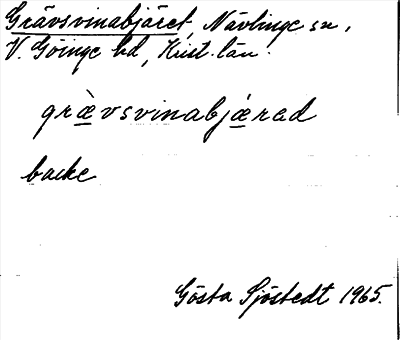 Grävsvinabjäret, Nävlinge sn,
V. Göinge hd, Krist. län.
græ̀vsvinabjǽrad
backe
Gösta Sjöstedt 1965.